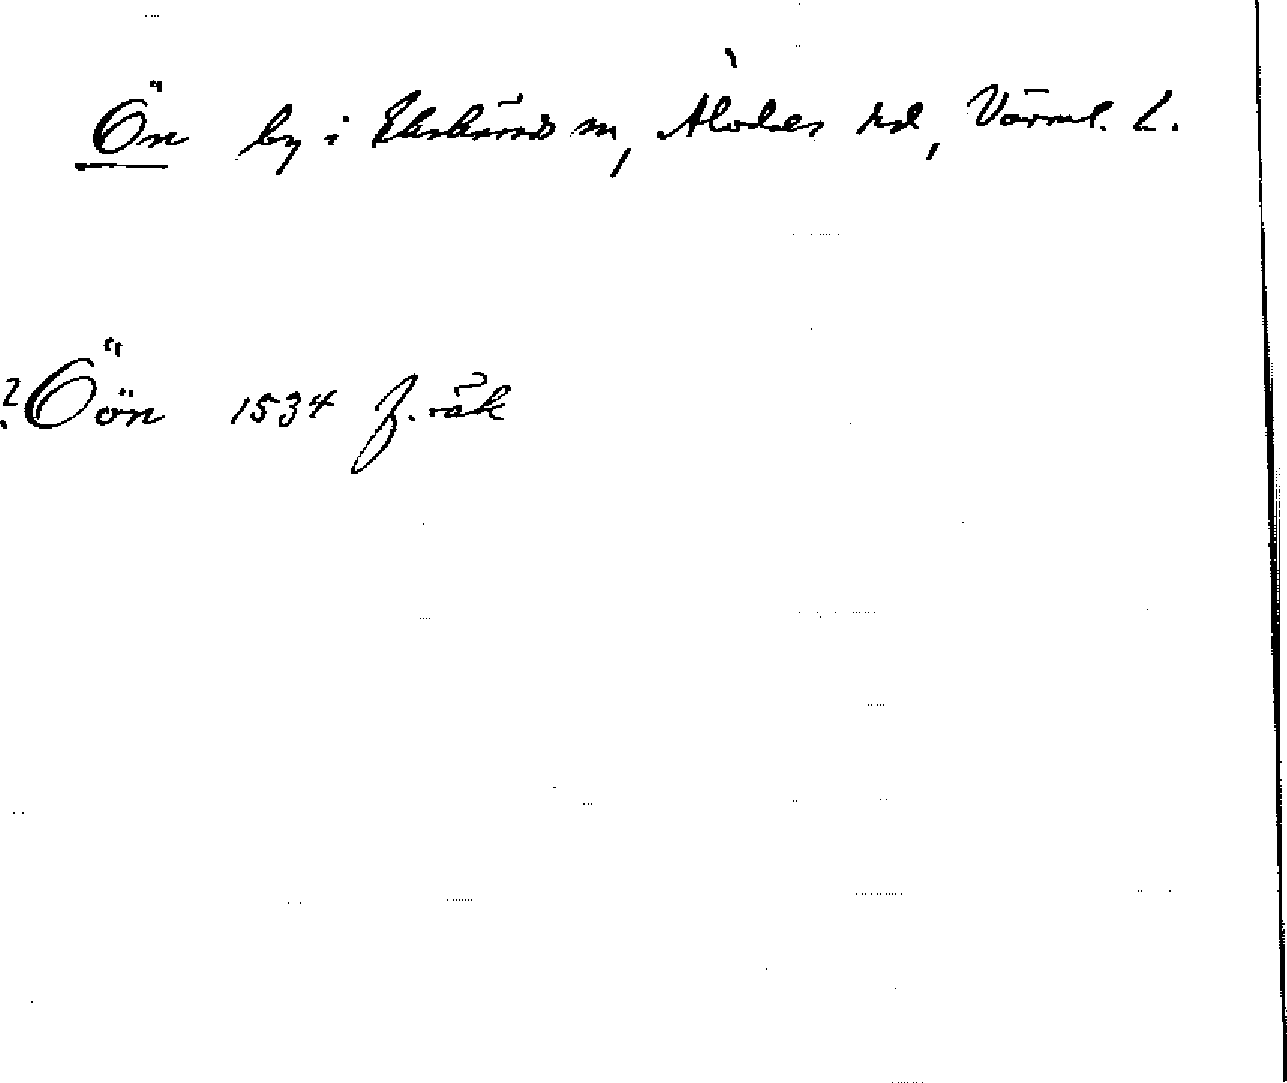 Ön by i Ekshärads sn, Älvdals hd, Värml. L.
? Öön 1534 f. räk